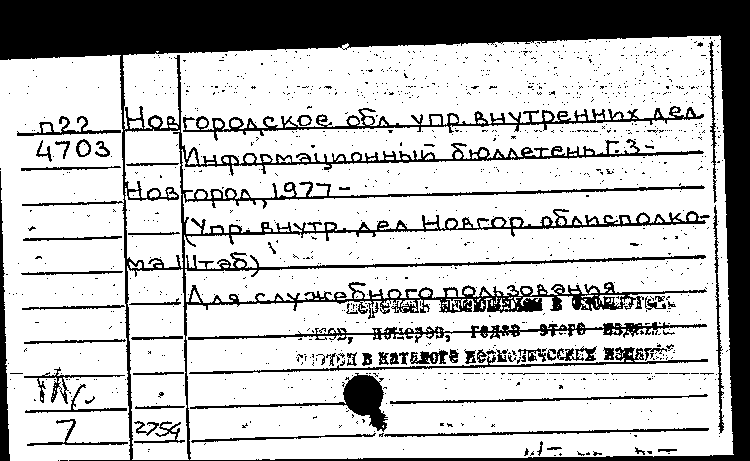 п22 Новгородское обл. упр. внутренних дел
4703 Информационный бюллетень Г.3-
Новгород, 1977-
(Упр. внутр. дел Новгор. облисполко-
ма Штаб)
Для служебного пользования
перечень имеющихся в библиотеке
номеров, годов этого издания
в каталоге периодических изданий
7 2754